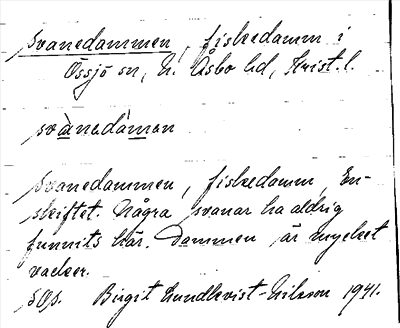 Svanedammen, fiskedamm i
Össjö sn, N. Åsbo hd, Krist. l.
svànedàmen
Svanedammen, fiskedamm, En-
skiftet. Några svanar ha aldrig
funnits här. Dammen är mycket
vacker.
SOJ. Birgit Lundkvist-Nilsson 1941.